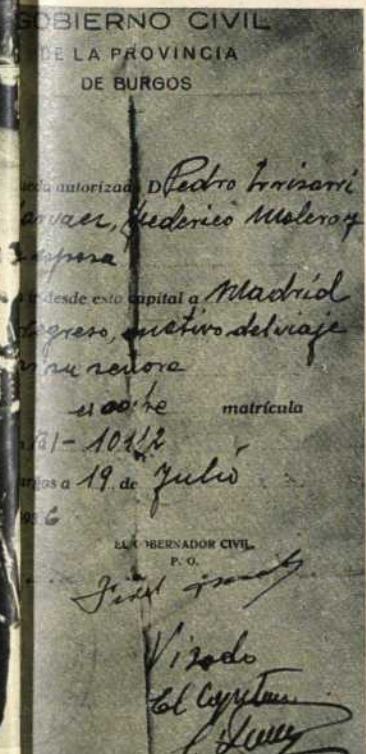 GOBIERNO CIVIL
DE LA PROVINCIA
DE BURGOS
autorizado D. Pedro Irrisarri
Federico Molero y
esposa
desde esta capital a Madrid
regreso, motivo del viaje
su señora
el coche matrícula
- 10112
a 19 de Julio
6
EL GOBERNADOR CIVIL,
P. O.
Visado
El Capitan